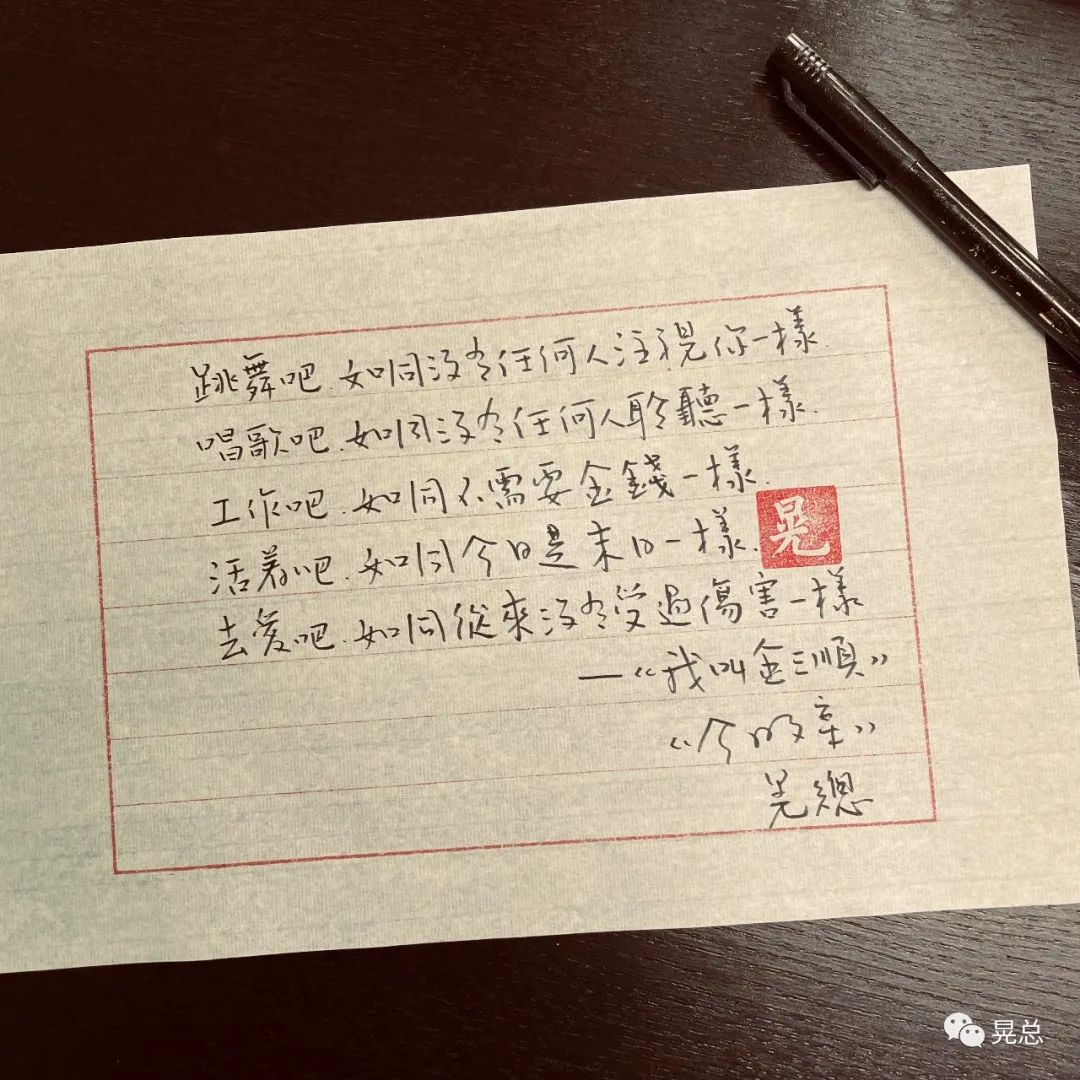 跳舞吧.如同没有任何人注視你一樣.
唱歌吧.如同没有任何人聆聽一樣.
工作吧.如同不需要金錢一樣.
活着吧.如同今日是末日一樣.
晃
去爱吧.如同從來没有受過傷害一樣
—《我叫金三順》
《今日文章》
晃總
晃总